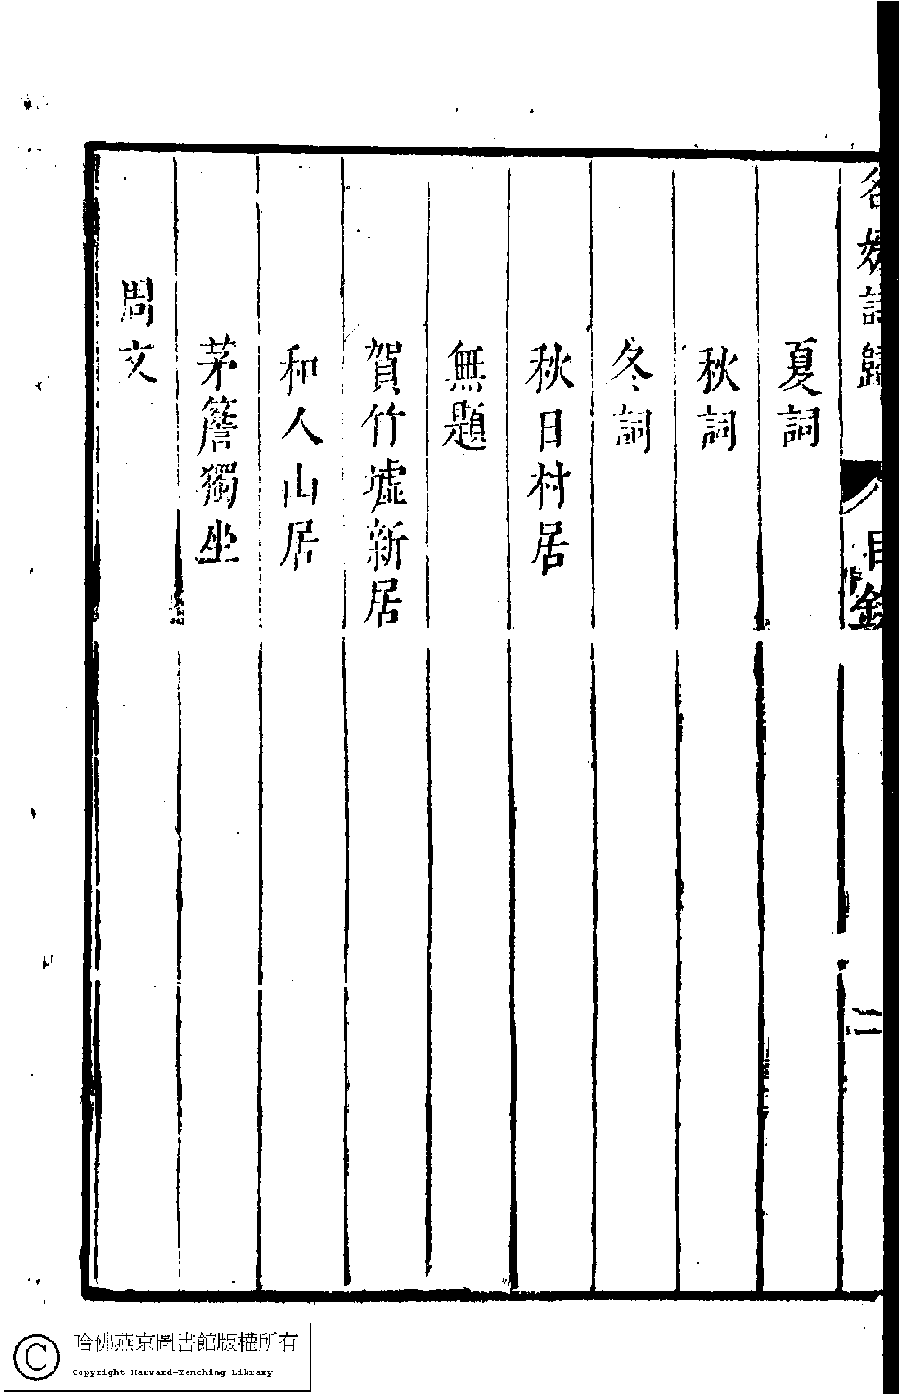 名媛詩歸 目錄 二
夏詞
秋詞
冬詞
秋日村居
無題
賀竹墟新居
和人山居
茅簷獨坐
周文
哈佛燕京圖書館版權所有
Copyright Harvard-Yenching Library